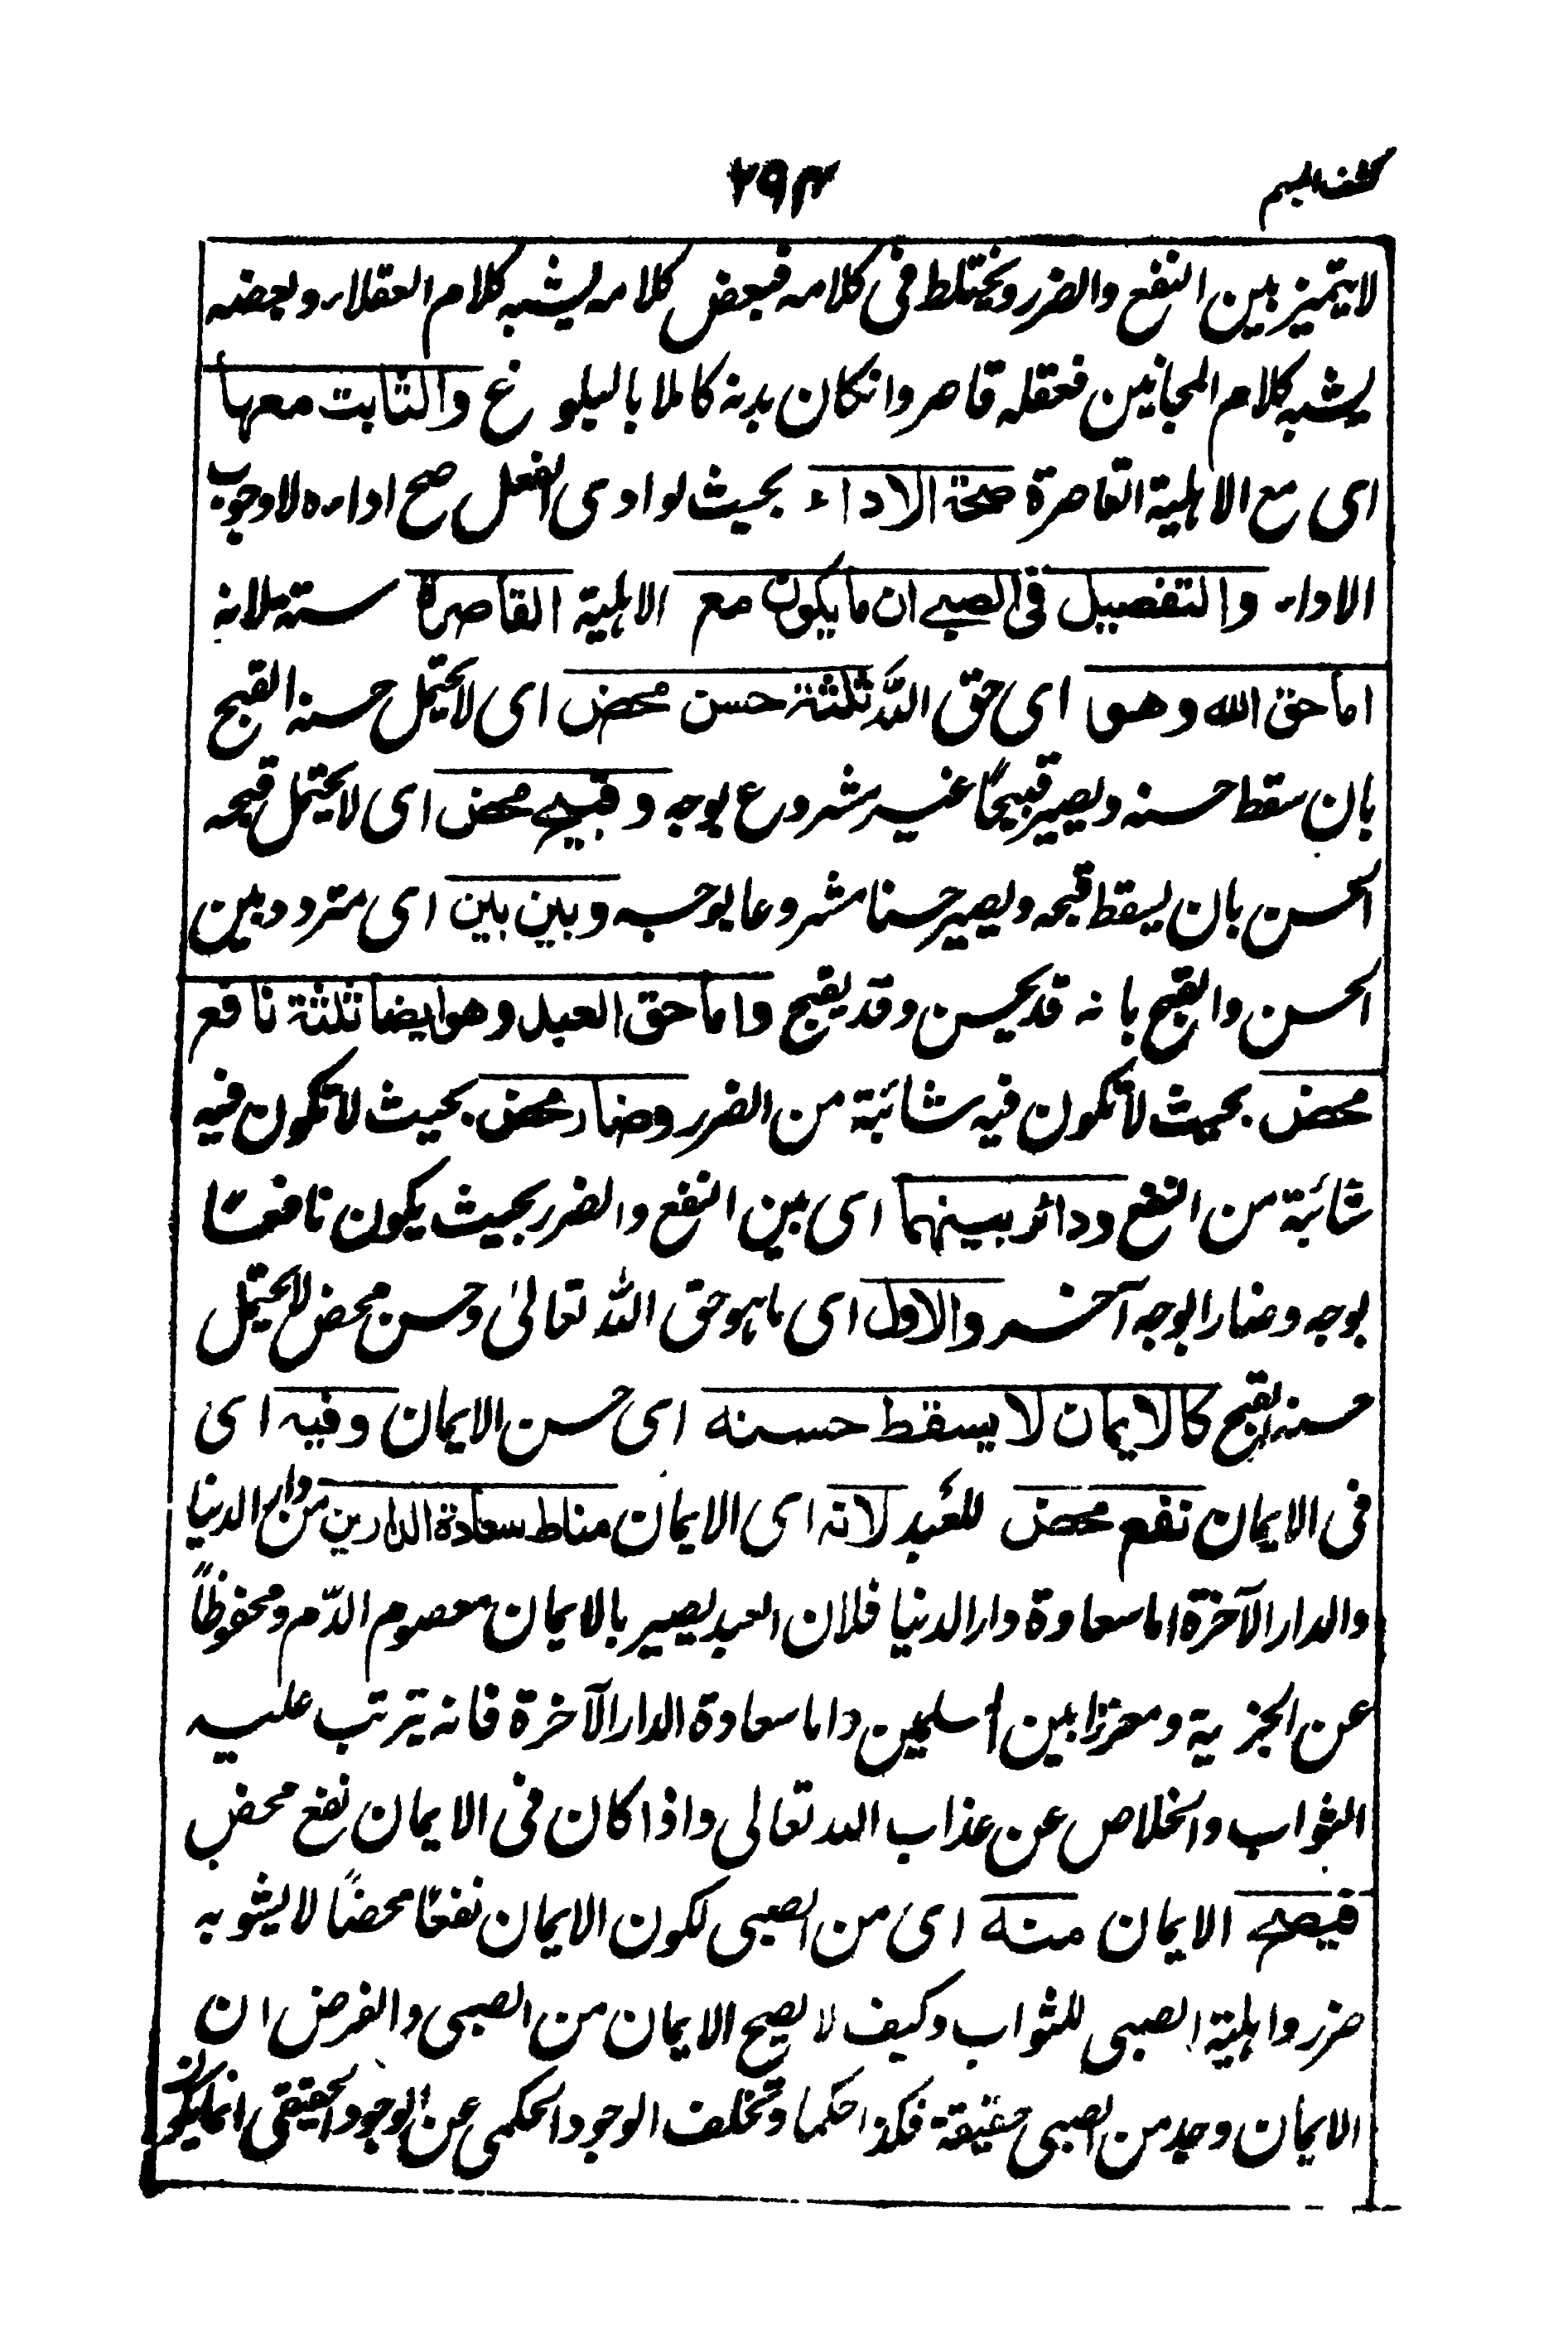 كشف المبهم
٢٩٤
لا يتميز بين النفع والضرر ويختلط فى كلامه فبعض كلامه يشبه كلام العقلاء وبعضه
يشبه كلام المجانين فعقله قاصر وانكان بدنه كاملا بالبلوغ والثابت معها
اى مع الاهلية القاصرة صحة الاداء بحيث لو ادى الفعل صح اداءه لا وجوب
الاداء والتفصيل فى الصبى ان ما يكون مع الاهلية القاصرة ستة لانه
اما حق الله وهو اى حق اللّٰه ثلثة حسن محض اى لا يحتمل حسنه القبح
بان سقط حسنه ويصير قبيحًا غير مشروع بوجه وقبيح محض اى لا يحتمل قبحه
الحسن بان يسقط قبحه ويصير حسنا مشروعا بوجه وبين بين اى متردد بين
الحسن والقبح بانه قد يحسن وقد يقبح واما حق العبد وهو ايضا ثلثة نافع
محض بحيث لا تكون فيه شائبة من الضرر وضار محض بحيث لا تكون فيه
شائبة من النفع ودائر بينهما اى بين النفع والضرر بحيث يكون نافعًا
بوجه وضارا بوجه آخر والاول اى ما هو حق اللّٰه تعالىٰ وحسن محض لا يحتمل
حسنه القبح كالايمان لا يسقط حسنه اى حسن الايمان وفيه اى
فى الايمان نفع محض للعبد لانه اى الايمان مناط سعادة الدارين من دار الدنيا
والدار الآخرة اما سعادة دار الدنيا فلان العبد يصير بالايمان معصوم الدّم ومحفوظاً
عن الجزية ومعززا بين المسلمين واما سعادة الدار الآخرة فانه يترتب عليه
الثواب والخلاص عن عذاب الله تعالى واذا كان فى الايمان نفع محض
فيصح الايمان منه اى من الصبى لكون الايمان نفعًا محضًا لا يشوبه
ضرر واهلية الصبى للثواب وكيف لا يصح الايمان من الصبى والفرض ان
الايمان وجد من الصبى حقيقة فكذا حكما وتخلف الوجود الحكمى عن الوجود الحقيقى انما يكون